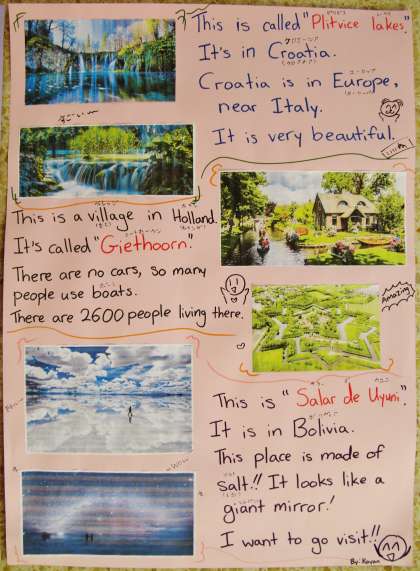 This is called "Plitvice lakes."
It's in Croatia.
Croatia is in Europe,
near Italy.
It is very beautiful.
This is a village in Holland.
It's called "Giethoorn."
There are no cars, so many
people use boats.
There are 2600 people living there.
Amazing
This is "Salar de Uyuni."
It is in Bolivia.
This place is made of
salt!! It looks like a
giant mirror!
I want to go visit!!